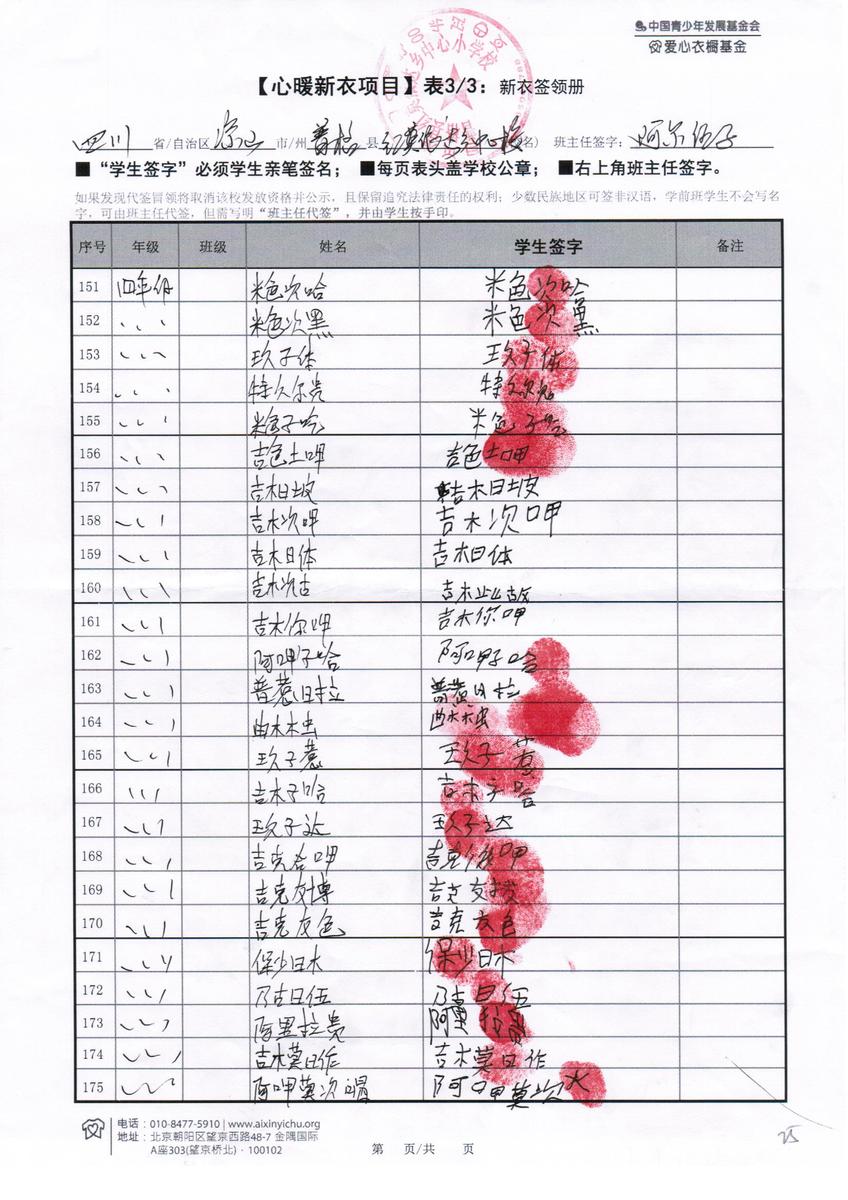 中国青少年发展基金会
爱心衣橱基金
【心暖新衣项目】表3/3：新衣签领册
四川 省/自治区 凉山 市/州 普格 县 名） 班主任签字：阿尔伍子
■“学生签字”必须学生亲笔签名； ■每页表头盖学校公章； ■右上角班主任签字。
如果发现代签冒领将取消该校发放资格并公示，且保留追究法律责任的权利；少数民族地区可签非汉语，学前班学生不会写名
字，可由班主任代签，但需写明“班主任代签”，并由学生按手印。
序号 年级 班级 姓名 学生签字 备注
151 四年级 米色次哈 米色次哈
152 米色次黑 米色次黑
153 玖子体 玖子体
154 特久尔贵
155 米色子哈 米色子哈
156 吉色土呷 吉色土呷
157 吉木日坡 吉木日坡
158 吉木次呷 吉木次呷
159 吉木日体 吉木日体
160 吉木次古 吉木
161 吉木你呷 吉木你呷
162 阿呷子哈 阿呷子哈
163 普惹日拉 普惹日拉
164 曲木木虫 曲木木虫
165 玖子惹 玖子惹
166 吉木子哈 吉木子哈
167 玖子达 玖子达
168 吉克合呷 吉克 呷
169 吉克友博 吉克友
170 吉克友色 吉克友色
171 保少日木 保少日木
172 乃古日伍 乃古日伍
173 阿里拉贵 阿里拉贵
174 吉木莫日作 吉木莫日作
175 阿呷莫次 阿呷莫次
电话：010-8477-5910 | www.aixinyichu.org
地址：北京朝阳区望京西路48-7 金隅国际
A座303(望京桥北)·100102
第 页/共 页
25